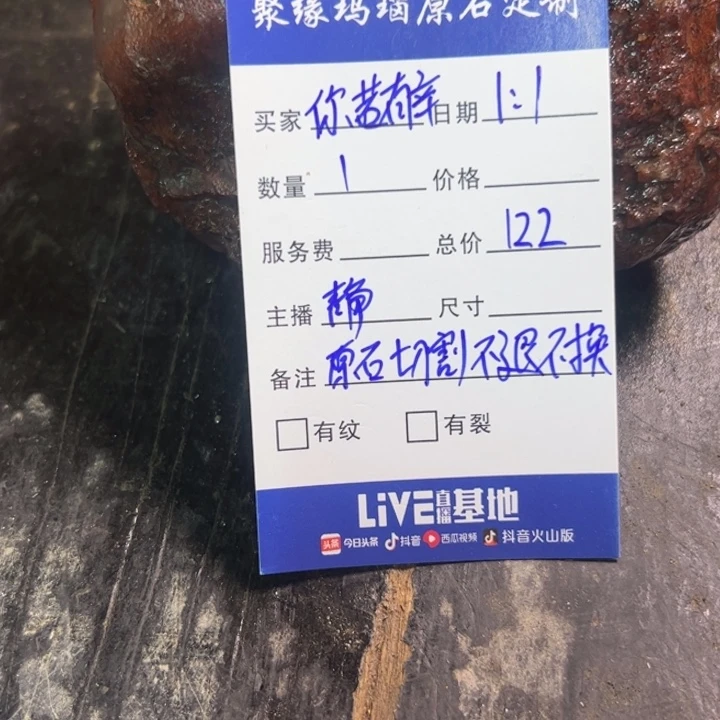 聚缘玛瑙原石定制
买家 你若有幸 日期 1:1
数量 1 价格
服务费 总价 122
主播 静 尺寸
备注 原石切割不退不换
有纹 有裂
LiVE直播基地
头条 今日头条 抖音 西瓜视频 抖音火山版